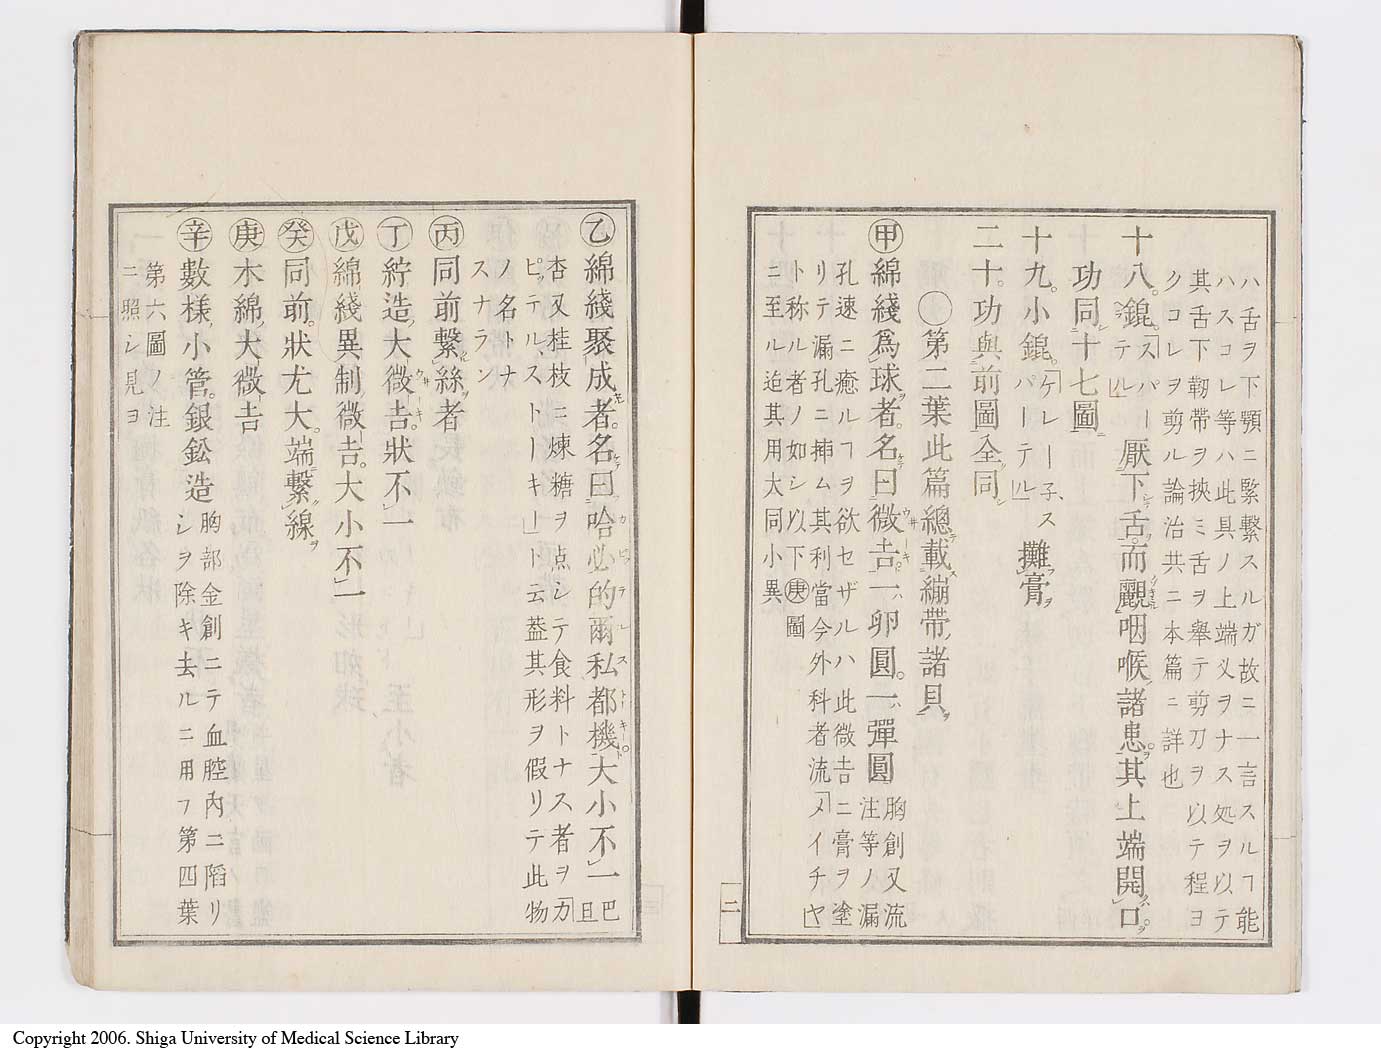 ハ舌ヲ下顎ニ緊繋スルガ故ニ一言スルヿ能
ハスコレ等ハ此具ノ上端义ヲナス処ヲ以テ
其舌下靭帯ヲ挾ミ舌ヲ舉テ剪刀ヲ以テ程ヨ
クコレヲ剪ル論治共ニ本篇ニ詳也
十八。鎞。「スパーテル」厭下舌。而覼咽喉諸患。其上端開口。
功同十七圖
十九。小鎞。「ケレー子、スパーテル」攤膏
二十。功與前圖仝同
◯第二葉此篇總載繃帶諸具
甲綿綫爲球者。名曰微吉一卵圓。一彈圓
胸創又流
注等ノ漏
孔速ニ癒ルヿヲ欲セザルハ此微吉ニ膏ヲ塗
リテ漏孔ニ挿ム其利當今外科者流「メイチヤ」
ト称ル者ノ如シ以下庚圖
ニ至ル迨其用大同小異
二
乙綿綫聚成者。名曰哈必的爾私都機大小不一
巴
且
杏又桂枝ニ煉糖ヲ点シテ食料トナス者ヲ「カ
ピッテル、ストーキー」ト云葢其形ヲ假リテ此物
ノ名トナ
スナラン
丙同前繋絲者
丁紵造大微吉。狀不一
戊綿綫異制微吉。大小不一
癸同前。狀尤大。端繋線
庚木綿大微吉
辛數樣小管。銀鈆造
胸部金創ニテ血腔內ニ蹈リ
シヲ除キ去ルニ用フ第四葉
第六圖ノ注
ニ照シ見ヨ
Copyright 2006. Shiga University of Medical Science Library